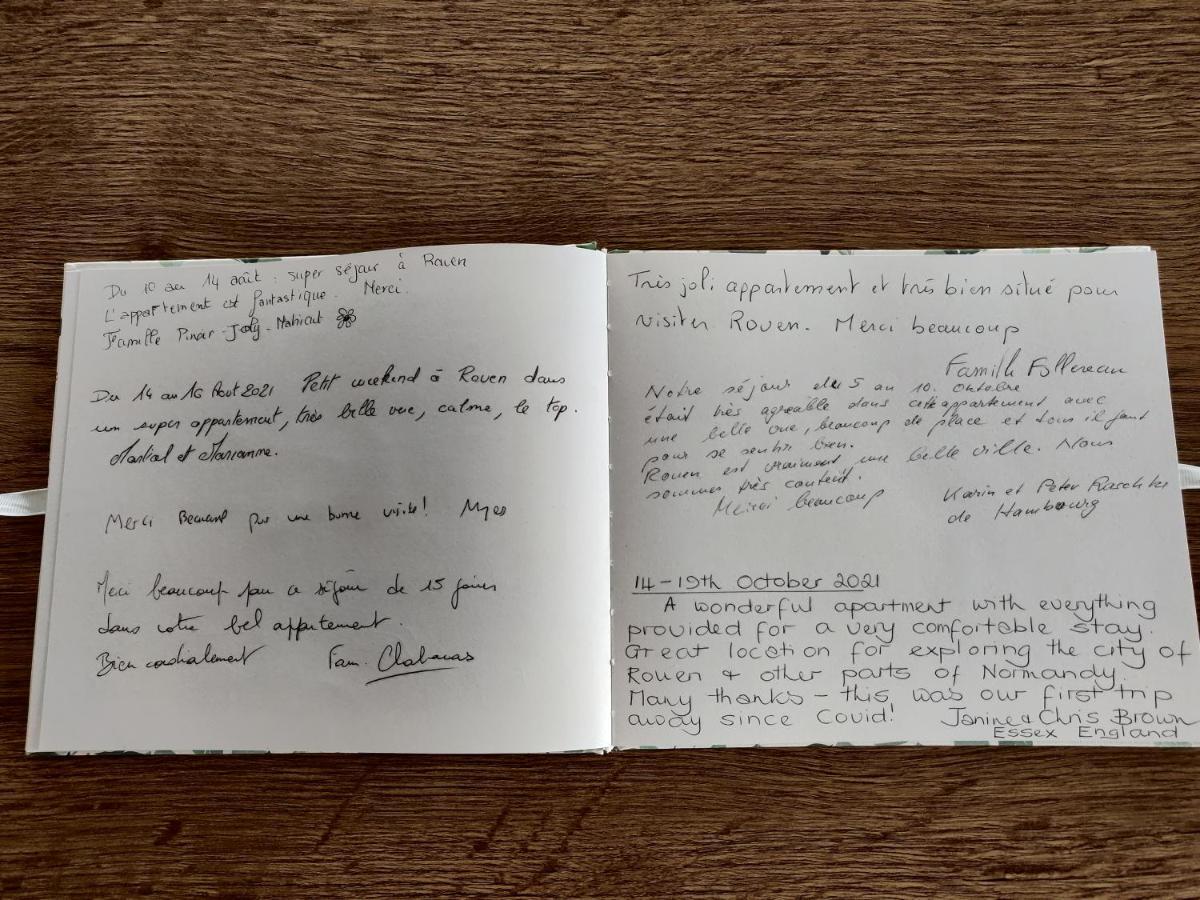 Du 10 au 14 août : super séjour à Rouen
L'appartement est fantastique. Merci.
Famille Pinar-Joly-Mahieut
Du 14 au 16 Aout 2021 Petit weekend à Rouen dans
un super appartement, très belle vue, calme, le top.
Martial et Marianne.
Merci Beaucoup pour une bonne visite!
Merci beaucoup pour ce séjour de 15 jours
dans votre bel appartement.
Bien cordialement Fam. Chabanas
Très joli appartement et très bien situé pour
visiter Rouen. Merci beaucoup
Famille Follereau
Notre séjour du 5 au 10. Octobre
était très agreable dans cette appartement avec
une belle vue, beaucoup de place et tous il faut
pour se sentir bien.
Rouen est vraiment une belle ville. Nous
sommes très content.
Merci beaucoup Karin et Peter
de Hambourg
14-19th October 2021
A wonderful apartment with everything
provided for a very comfortable stay.
Great location for exploring the city of
Rouen & other parts of Normandy.
Many thanks - this was our first trip
away since Covid! Janine & Chris Brown
Essex England